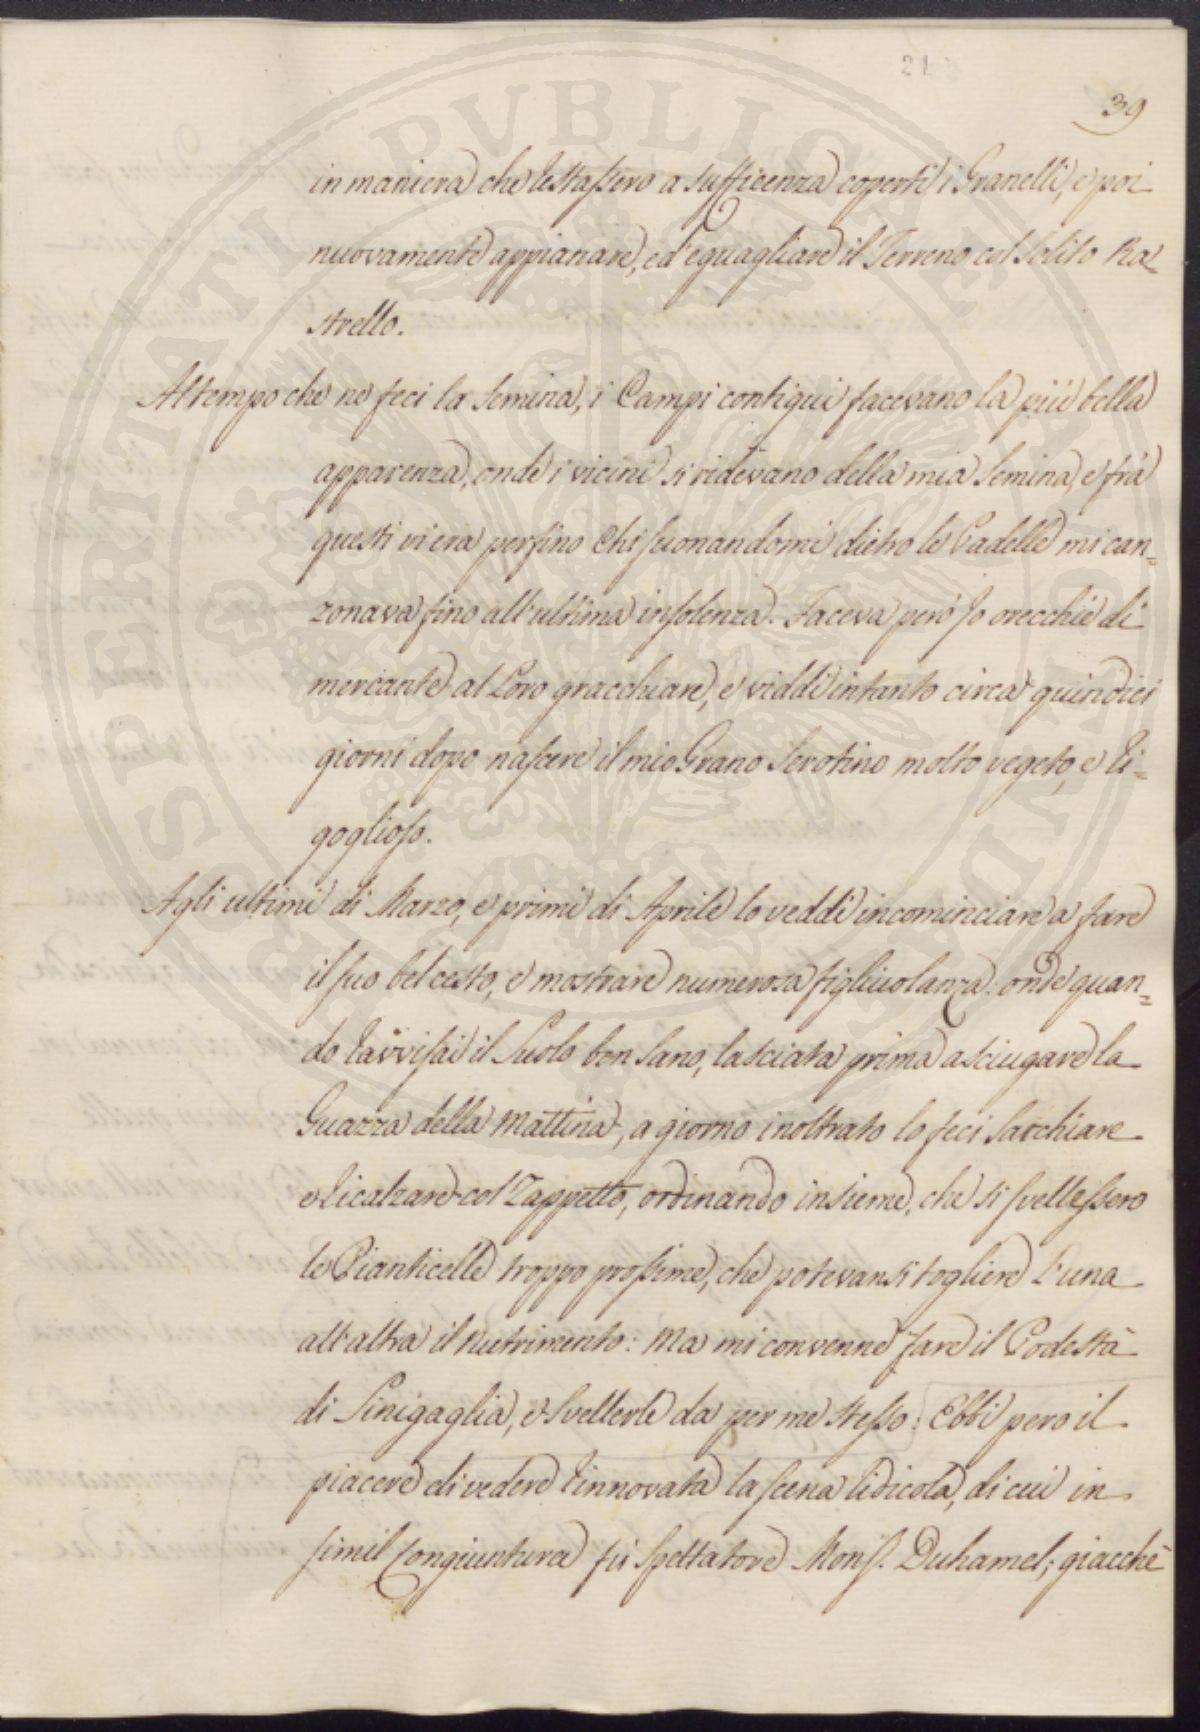 21
39
in maniera che restassero a sufficenza coperti i Granelli, e poi
nuovamente appianare, ed eguagliare il Terreno col solito Ra=
strello.
Al tempo che ne feci la Semina, i Campi contigui facevano la più bella
apparenza, onde i vicini si ridevano della mia Semina, e frà
questi vi era perfino chi suonandomi dietro le Padelle mi can=
zonava fino all'ultima insolenza. Faceva però Io orecchie di
mercante al Loro gracchiare, e viddi intanto circa quindici
giorni dopo nascere il mio Grano Serotino molto vegeto, e ri=
goglioso.
Agli ultimi di Marzo, e primi di Aprile lo veddi incominciare a fare
il suo bel cesto, e mostrare numerosa figliuolanza: onde quan=
do ravvisai il Suolo ben sano, lasciata prima asciugare la
Guazza della mattina, a giorno inoltrato lo feci Sarchiare
e ricalzare col Zappetto, ordinando insieme, che si svellessero
le Pianticelle troppo prossime, che potevansi togliere l'una
all'altra il nutrimento: Ma mi convenne fare il Podestà
di Sinigaglia, e Svellerle da per me stesso: Ebbi pero il
piacere di vedere rinnovata la scena ridicola, di cui in
simil Congiuntura fù Spettatore Mons. Duhamel; giacchè
PROSPERITATI PUBLICAE AUGENDAE